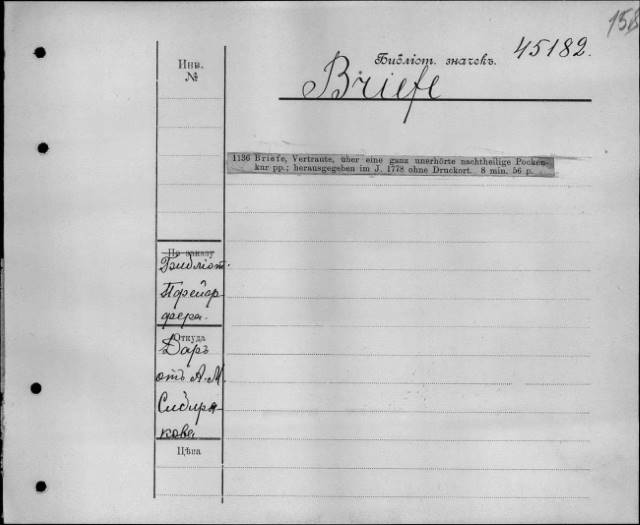 158
Библіот. значекъ. 45182.
Инв.
№
Briefe
1136 Briefe, Vertraute, über eine ganz unerhörte nachtheilige Pocken-
kur pp.; herausgegeben im J. 1778 ohne Druckort. 8 min. 56 p.
По заказу
Библіот.
Пфейф
фера.
Откуда
Даръ
отъ А. М.
Сибиря
кова
Цѣна